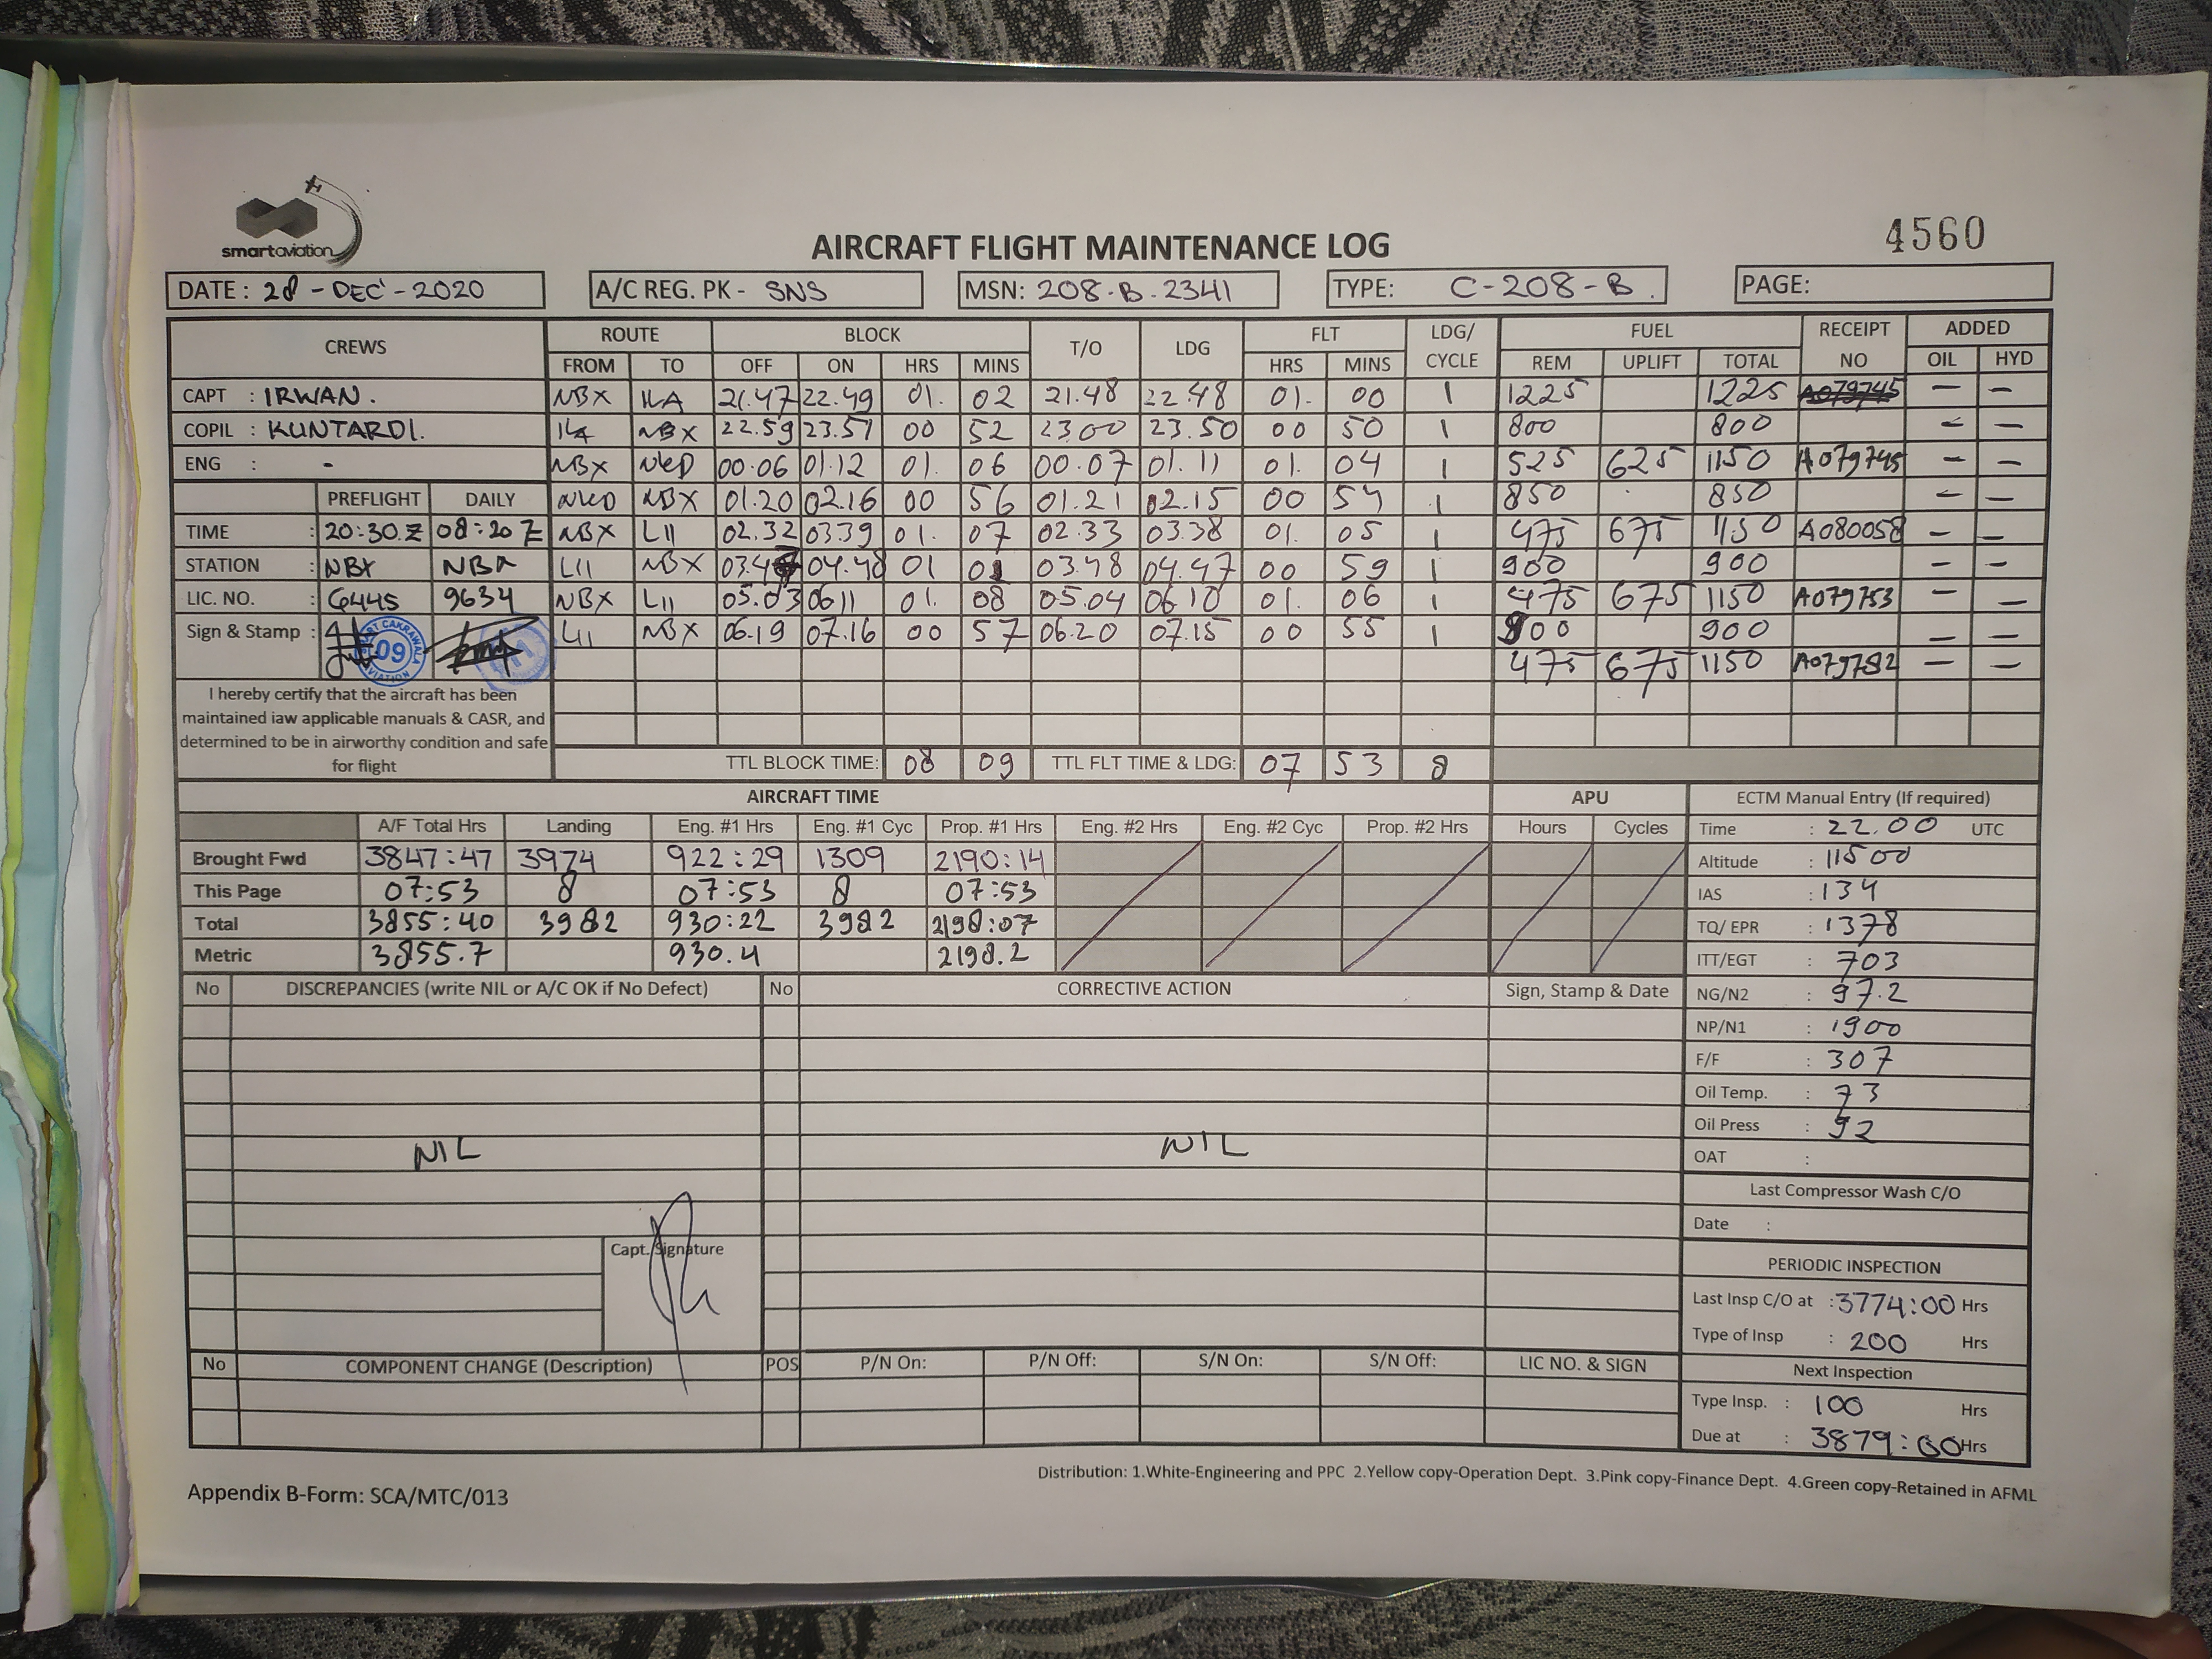 smartaviation
4560
AIRCRAFT FLIGHT MAINTENANCE LOG
DATE : 28 - DEC - 2020 A/C REG. PK - SNS MSN: 208-B-2341 TYPE: C-208-B. PAGE:
CREWS ROUTE BLOCK T/O LDG FLT LDG/ CYCLE FUEL RECEIPT NO ADDED
FROM TO OFF ON HRS MINS HRS MINS REM UPLIFT TOTAL OIL HYD
CAPT : IRWAN. NBX ILA 21.47 22.49 01. 02 21.48 22.48 01. 00 1 1225 1225 A079745 — —
COPIL : KUNTARDI. ILA NBX 22.59 23.51 00 52 23.00 23.50 00 50 1 800 800 — —
ENG : - NBX NKD 00.06 01.12 01. 06 00.07 01.11 01. 04 1 525 625 1150 A079745 — —
PREFLIGHT DAILY NKD NBX 01.20 02.16 00 56 01.21 02.15 00 54 1 850 850 — —
TIME : 20:30.Z 08:20 Z NBX LII 02.32 03.39 01. 07 02.33 03.38 01. 05 1 475 675 1150 A080058 — —
STATION : NBX NBX LII NBX 03.47 04.48 01 01 03.48 04.47 00 59 1 900 900 — —
LIC. NO. : 6445 9634 NBX LII 05.03 0611 01. 08 05.04 06.10 01. 06 1 475 675 1150 A079753 — —
Sign & Stamp : 09 LII NBX 06.19 07.16 00 57 06.20 07.15 00 55 1 900 900 — —
475 675 1150 A079782 — —
I hereby certify that the aircraft has been
maintained iaw applicable manuals & CASR, and
determined to be in airworthy condition and safe
for flight
TTL BLOCK TIME: 08 09 TTL FLT TIME & LDG: 07 53 8
AIRCRAFT TIME APU ECTM Manual Entry (If required)
A/F Total Hrs Landing Eng. #1 Hrs Eng. #1 Cyc Prop. #1 Hrs Eng. #2 Hrs Eng. #2 Cyc Prop. #2 Hrs Hours Cycles Time : 22.00 UTC
Brought Fwd 3847:47 3974 922:29 1309 2190:14 Altitude : 11500
This Page 07:53 8 07:53 8 07:53 IAS : 134
Total 3855:40 3982 930:22 3982 2198:07 TQ/ EPR : 1378
Metric 3855.7 930.4 2198.2 ITT/EGT : 703
No DISCREPANCIES (write NIL or A/C OK if No Defect) No CORRECTIVE ACTION Sign, Stamp & Date NG/N2 : 97.2
NP/N1 : 1900
F/F : 307
Oil Temp. : 73
Oil Press : 92
NIL NIL
OAT :
Last Compressor Wash C/O
Date :
Capt. Signature
PERIODIC INSPECTION
Last Insp C/O at : 3774:00 Hrs
Type of Insp : 200 Hrs
No COMPONENT CHANGE (Description) POS P/N On: P/N Off: S/N On: S/N Off: LIC NO. & SIGN Next Inspection
Type Insp. : 100 Hrs
Due at : 3879:00 Hrs
Distribution: 1.White-Engineering and PPC 2.Yellow copy-Operation Dept. 3.Pink copy-Finance Dept. 4.Green copy-Retained in AFML
Appendix B-Form: SCA/MTC/013